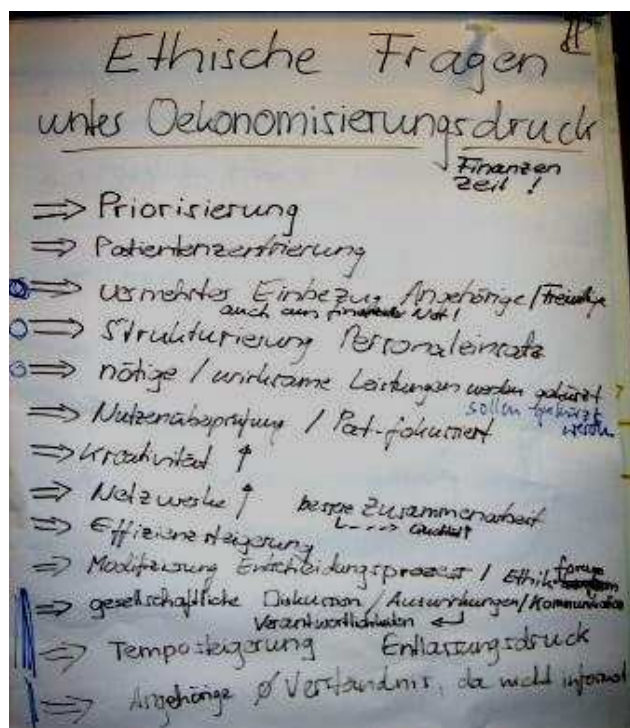 Ethische Fragen
unter Oekonomisierungsdruck
Finanzen
Zeit !
⇒ Priorisierung
⇒ Patientenzentrierung
⇒ vermehrter Einbezug Angehörige / Freiwillige
auch aus finanzieller Not !
⇒ Strukturierung Personaleinsatz
⇒ nötige / wirksame Leistungen werden gekürzt ?
sollen gekürzt
werden
⇒ Nutzenüberprüfung / Pat-fokussiert
⇒ Kreativität ↑
⇒ Netzwerke ↑ bessere Zusammenarbeit
⇒ Effizienzsteigerung
⇒ Modifizierung Entscheidungsprozess / Ethik forum
⇒ gesellschaftliche Diskussion / Auswirkungen / Kommunikation
Verantwortlichkeiten
⇒ Temposteigerung Entlassungsdruck
⇒ Angehörige Ø Verständnis, da nicht informiert